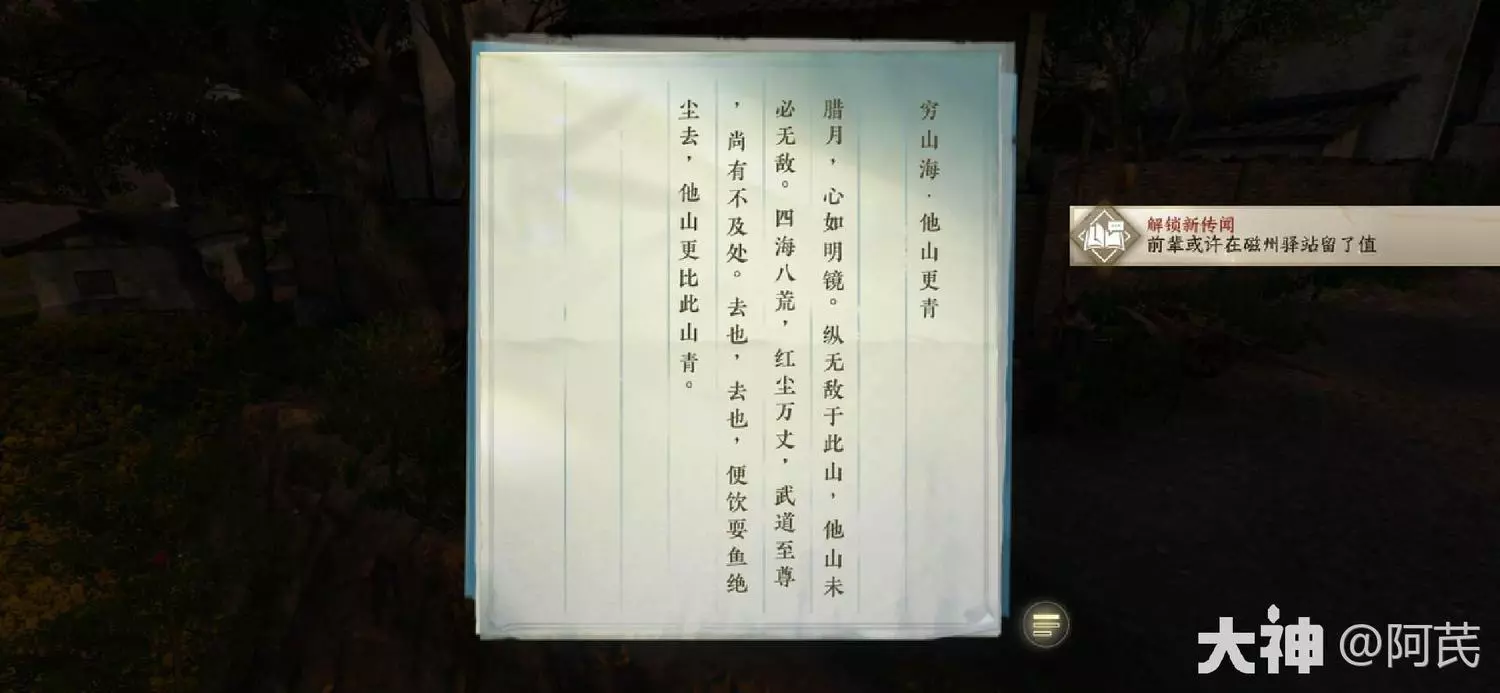 穷山海·他山更青
腊月，心如明镜。纵无敌于此山，他山未
必无敌。四海八荒，红尘万丈，武道至尊
，尚有不及处。去也，去也，便饮耍鱼绝
尘去，他山更比此山青。
解锁新传闻
前辈或许在磁州驿站留了值
大神 @阿芪